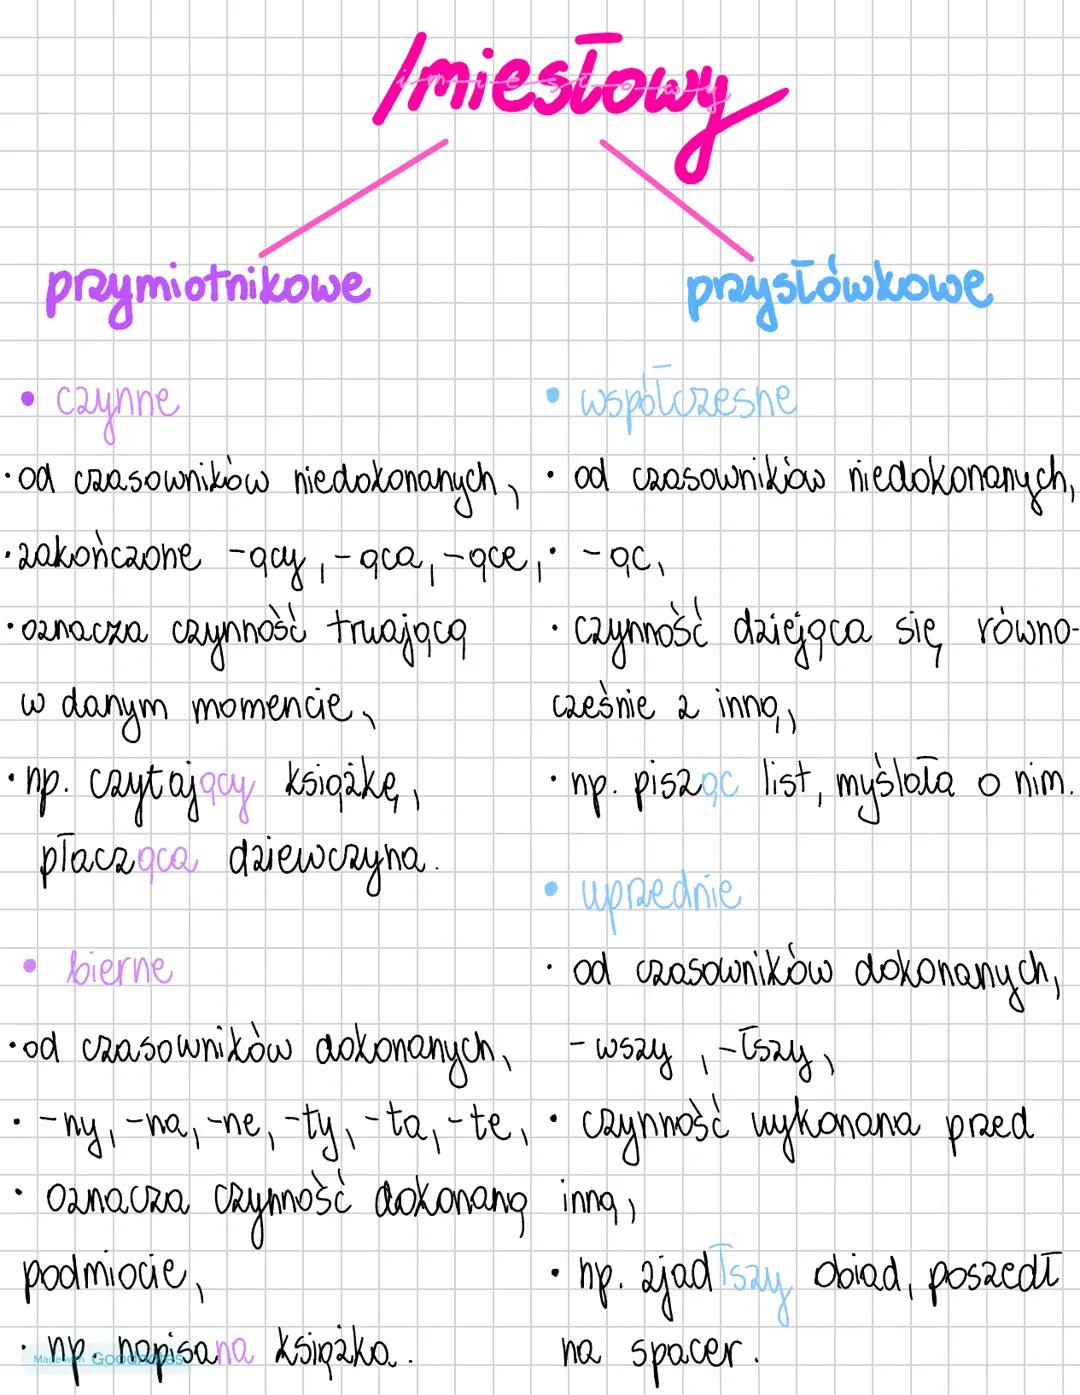 Imiesłowy
imiesłowy
przymiotnikowe
• czynne
· od czasowników niedokonanych,
· zakończone -ący, -ąca, -ące,
· oznacza czynność trwającą
w danym momencie,
· np. czytający książkę,
płacząca dziewczyna.
• bierne
· od czasowników dokonanych,
· -ny, -na, -ne, -ty, -ta, -te,
· oznacza czynność dokonaną
podmiocie,
· np. napisana książka.
przysłówkowe
• współczesne
· od czasowników niedokonanych,
· -ąc,
· czynność dziejąca się równo-
cześnie z inną,
· np. pisząc list, myślała o nim.
• uprzednie
· od czasowników dokonanych,
-wszy, -łszy,
· czynność wykonana przed
inną,
· np. zjadłszy obiad, poszedł
na spacer.
Made with Goodnotes